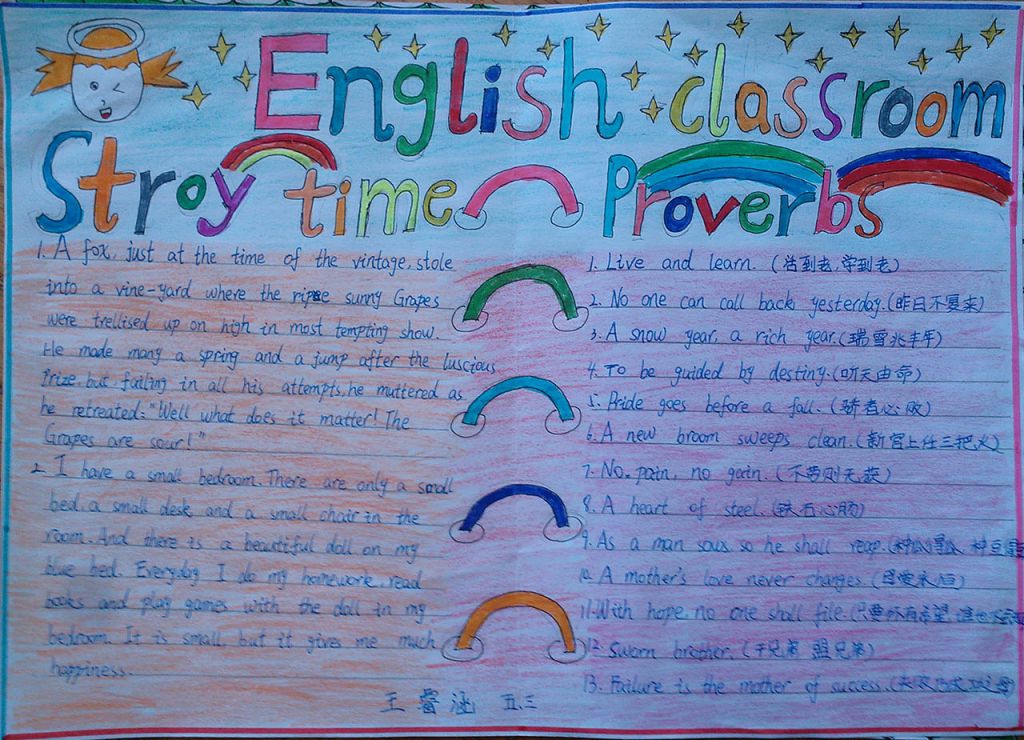 English classroom
Stroy time
Proverbs
1. A fox, just at the time of the vintage, stole
into a vine-yard where the ripe sunny Grapes
were trellised up on high in most tempting show.
He made many a spring and a jump after the luscious
Prize, but, failing in all his attempts, he muttered as
he retreated: "Well what does it matter! The
Grapes are sour!"
2. I have a small bedroom. There are only a small
bed, a small desk and a small chair in the
room. And there is a beautiful doll on my
blue bed. Everyday I do my homework, read
books and play games with the doll in my
bedroom. It is small, but it gives me much
happiness.
1. Live and learn. (活到老,学到老)
2. No one can call back yesterday.(昨日不复来)
3. A snow year, a rich year.(瑞雪兆丰年)
4. To be guided by destiny.(听天由命)
5. Pride goes before a fall. (骄者必败)
6. A new broom sweeps clean.(新官上任三把火)
7. No. pain, no gain. (不劳则无获)
8. A heart of steel. (铁石心肠)
9. As a man sous, so he shall reap.(种瓜得瓜, 种豆得
10. A mother's love never changes. (母爱永恒)
11. With hope, no one shall file.(只要怀有希望,谁也不会
12. Sworn brother. (干兄弟 盟兄弟)
13. Failure is the mother of success.(失败乃成功之母)
王睿涵 五.三